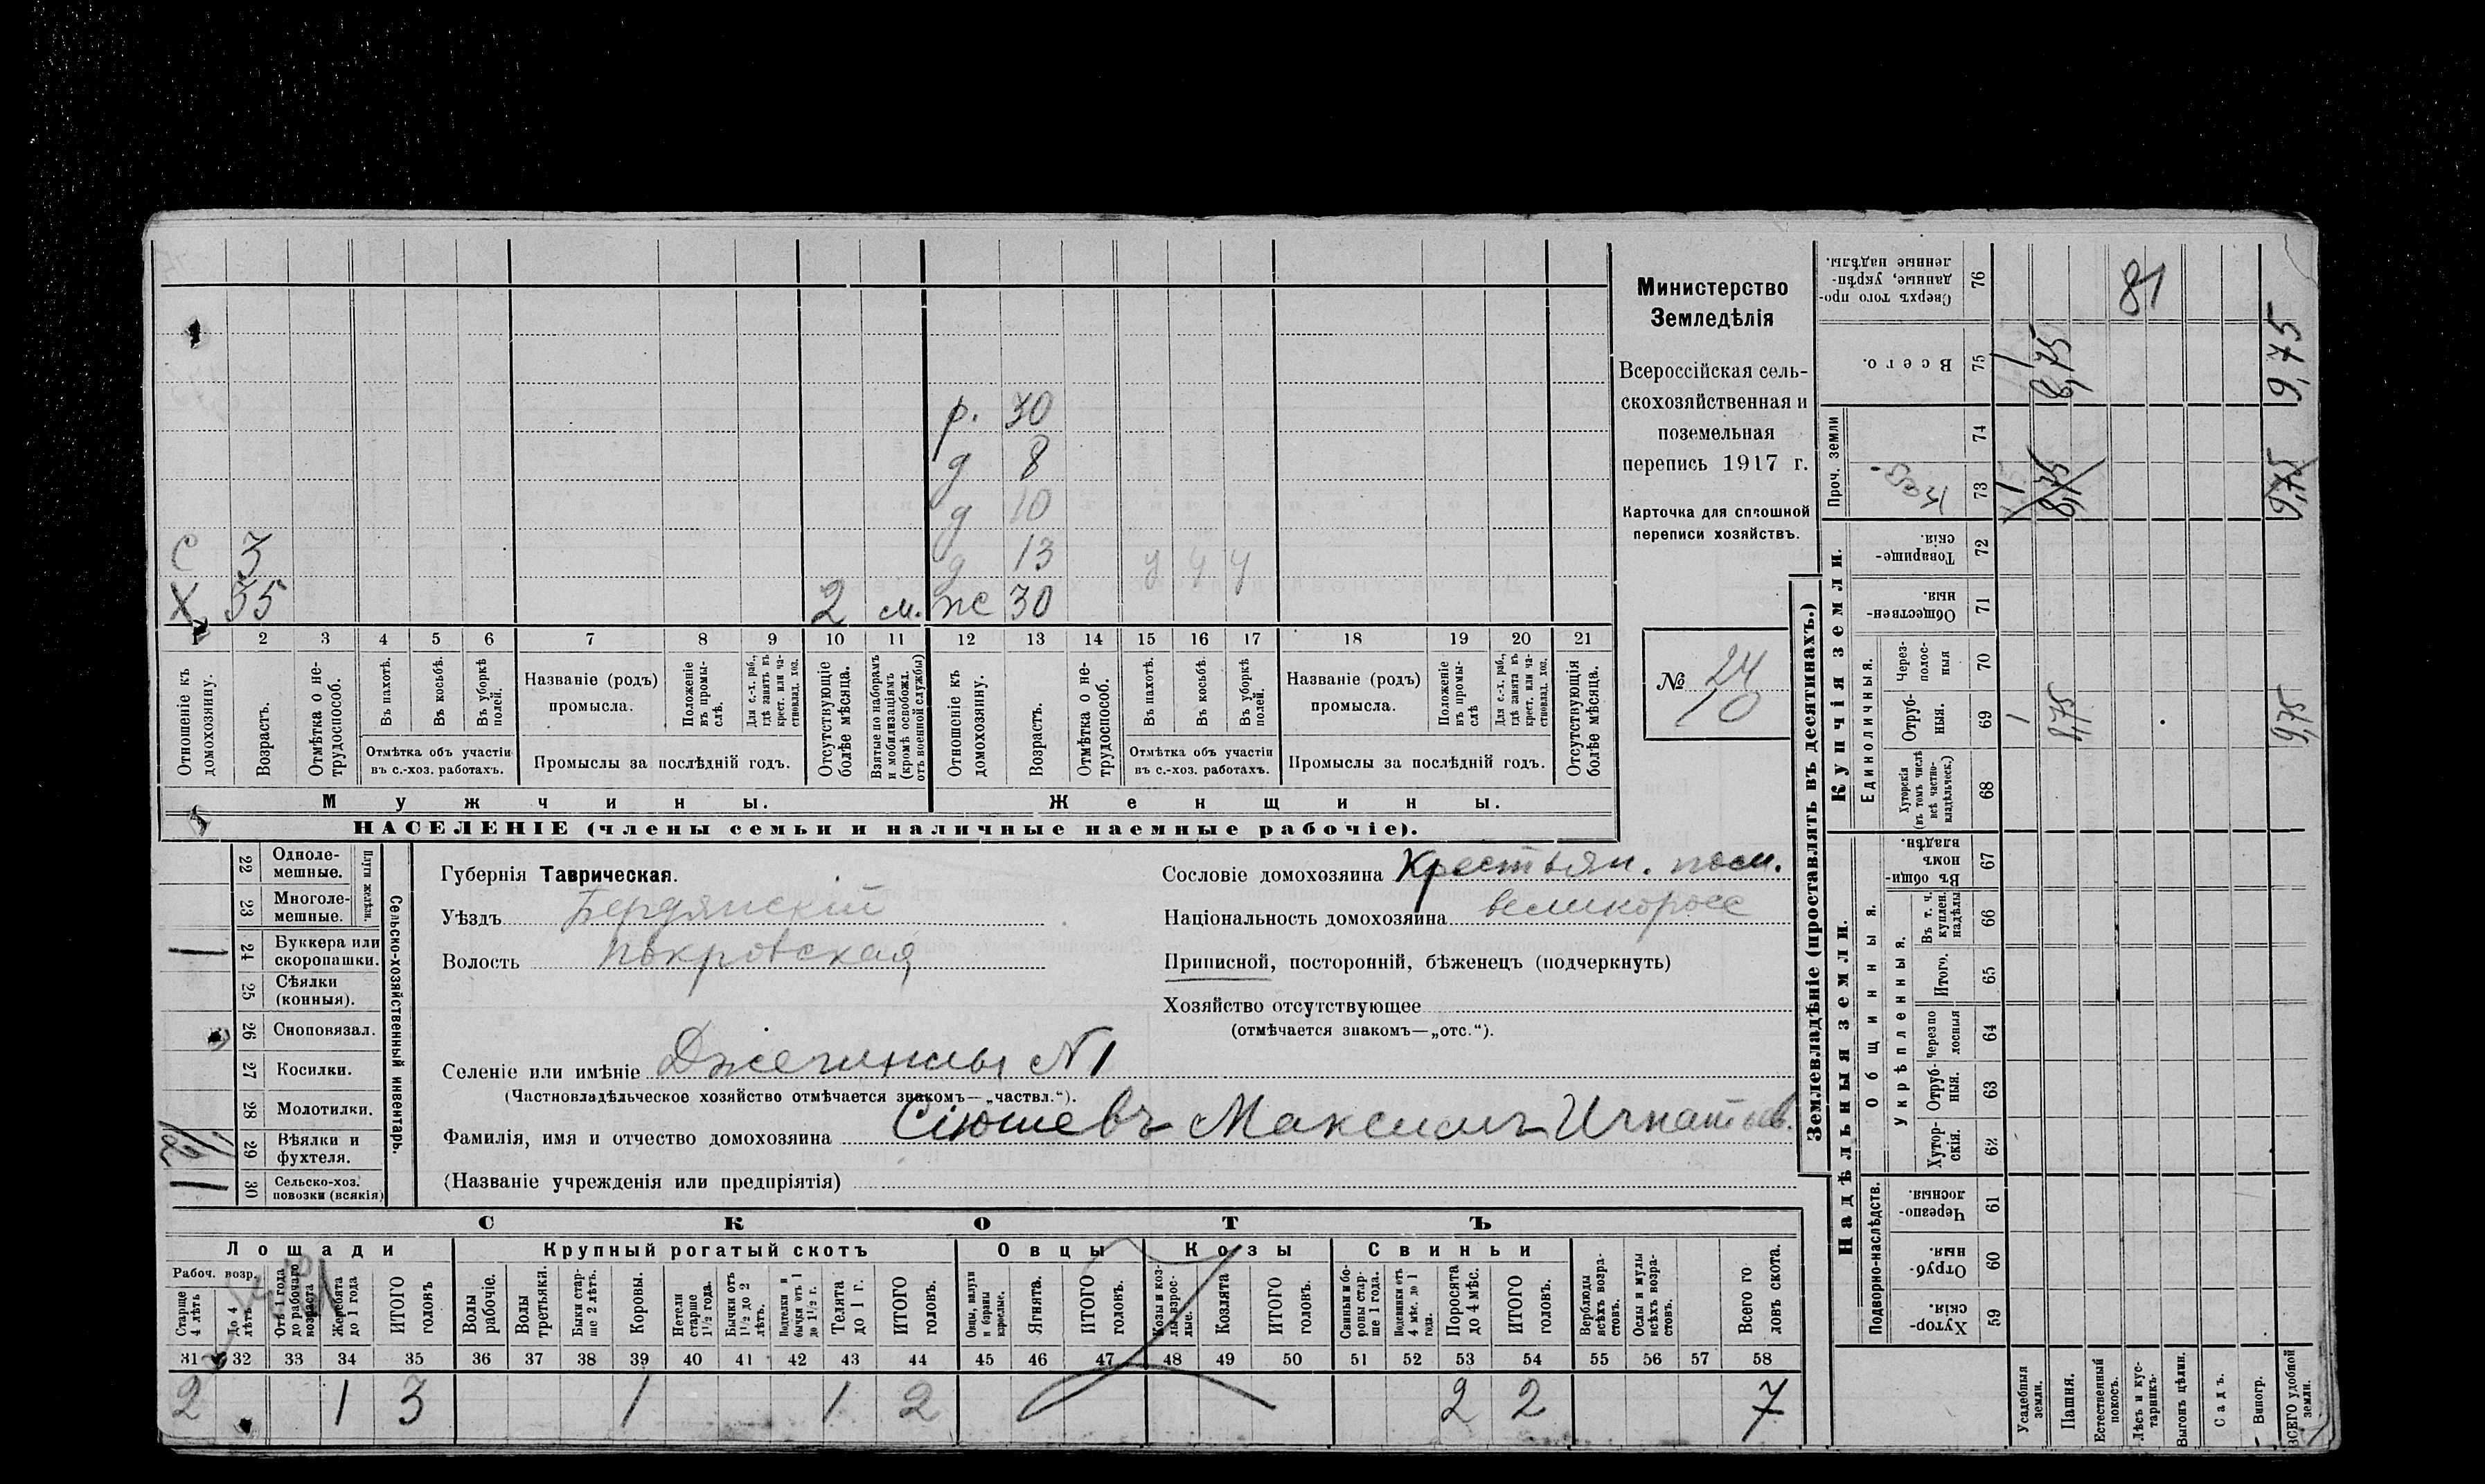 р. 30
д 8
д 10
с 3 д 13 у у у
х 35 2 м. ж 30
1 2 3 4 5 6 7 8 9 10 11 12 13 14 15 16 17 18 19 20 21
Отношеніе къ домохозяину.
Возрастъ.
Отмѣтка о нетрудоспособ.
Въ пахотѣ.
Въ косьбѣ.
Въ уборкѣ полей.
Отмѣтка объ участіи
въ с.-хоз. работахъ.
Названіе (родъ)
промысла.
Положеніе въ промыслѣ.
Для с.-х. раб., гдѣ занятъ въ крест. или частновлад. хоз.
Промыслы за послѣдній годъ.
Отсутствующіе болѣе мѣсяца.
Взятые по наборамъ и мобилизаціямъ (кромѣ освобожд. отъ военной службы)
Отношеніе къ домохозяину.
Возрастъ.
Отмѣтка о нетрудоспособ.
Въ пахотѣ.
Въ косьбѣ.
Въ уборкѣ полей.
Отмѣтка объ участіи
въ с.-хоз. работахъ.
Названіе (родъ)
промысла.
Положеніе въ промыслѣ
Для с.-х. раб., гдѣ занята въ крест. или частновлад. хоз.
Промыслы за послѣдній годъ.
Отсутствующія болѣе мѣсяца.
Мужчины. Женщины.
НАСЕЛЕНІЕ (члены семьи и наличные наемные рабочіе).
Министерство
Земледѣлія
Всероссійская сель-
скохозяйственная и
поземельная
перепись 1917 г.
Карточка для сплошной
переписи хозяйствъ.
№ 24
10
22 Одноле-
мешные.
23 Многоле-
мешные.
Плуги желѣзн.
1 24 Буккера или
скоропашки.
25 Сѣялки
(конныя).
26 Сноповязал.
27 Косилки.
28 Молотилки.
1/2 29 Вѣялки и
фухтеля.
1 30 Сельско-хоз.
повозки (всякія)
Сельско-хозяйственный инвентарь.
Губернія Таврическая.
Уѣздъ Бердянскій
Волость Покровская
Сословіе домохозяина Крестьян. пос.
Національность домохозяина великоросс
Приписной, посторонній, бѣженецъ (подчеркнуть)
Хозяйство отсутствующее
(отмѣчается знакомъ—„отс.“).
Селеніе или имѣніе Джегинлы N1
(Частновладѣльческое хозяйство отмѣчается знакомъ—„частвл.“).
Фамилія, имя и отчество домохозяина Сіюшевъ Максимъ Игнатьев.
(Названіе учрежденія или предпріятія)
СКОТЪ
Лошади Крупный рогатый скотъ Овцы Козы Свиньи
Рабоч. возр.
Старше 4 лѣтъ
До 4 лѣтъ
Отъ 1 года до рабочаго возраста
Жеребята до 1 года
ИТОГО головъ
Волы рабочіе.
Волы третьяки.
Быки старше 2 лѣтъ.
Коровы.
Нетели старше 1 1/2 года.
Бычки отъ 1 1/2 до 2 лѣтъ.
Подтелки и бычки отъ 1 до 1 1/2 г.
Телята до 1 г.
ИТОГО головъ.
Овцы, валухи и бараны взрослые.
Ягнята.
ИТОГО головъ.
Козы и козлы взрослые.
Козлята
ИТОГО головъ.
Свиньи и боровы старше 1 года.
Подсвинки отъ 4 мѣс. до 1 года.
Поросята до 4 мѣс.
ИТОГО головъ.
Верблюды всѣхъ возрастовъ.
Ослы и мулы всѣхъ возрастовъ.
Всего головъ скота.
31 32 33 34 35 36 37 38 39 40 41 42 43 44 45 46 47 48 49 50 51 52 53 54 55 56 57 58
2 1 3 1 1 2 2 2 7
Землевладѣніе (проставлять въ десятинахъ.)
Надѣльныя земли. Купчія земли.
Сверхъ того проданные, укрѣпленные надѣлы. 76 81
Всего. 75 1 8,75 9,75
Проч. земли
74
73 1 8,75 9,75
Товарищескія. 72
Общественныя. 71
Единоличныя.
Черезполосныя 70
Отрубныя. 69 1 8,75 9,75
Хуторскія (въ томъ числѣ всѣ частновладѣльческ.) 68
Общинныя.
Въ общинномъ владѣн. 67
Въ т. ч. куплен. надѣлы 66
Укрѣпленныя.
Итого. 65
Черезполосныя 64
Отрубныя. 63
Хуторскія. 62
Подворно-наслѣдств.
Черезполосныя. 61
Отрубныя. 60
Хуторскія. 59
Усадебныя земли.
Пашня.
Естественный покосъ.
Лѣсъ и кустарникъ.
Выгонъ цѣлин.
Садъ.
Виногр.
ВСЕГО удобной земли.